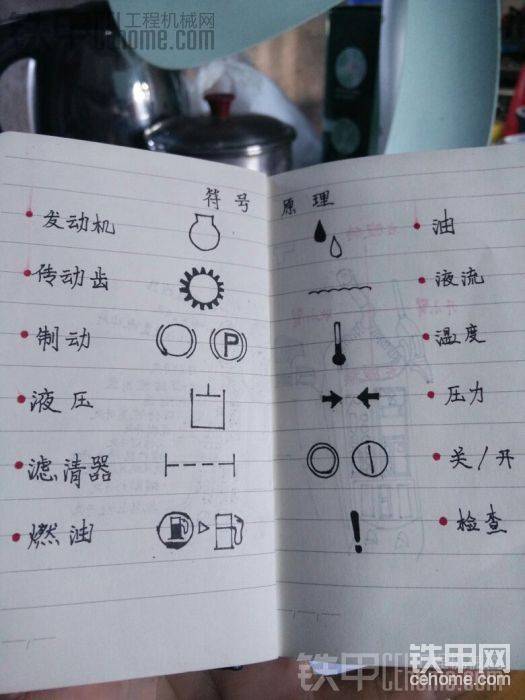 铁甲 工程机械网
cehome.com
符号 原理
发动机
油
传动齿
液流
制动
P
温度
液压
压力
滤清器
关/开
燃油
检查
铁甲网
cehome.com